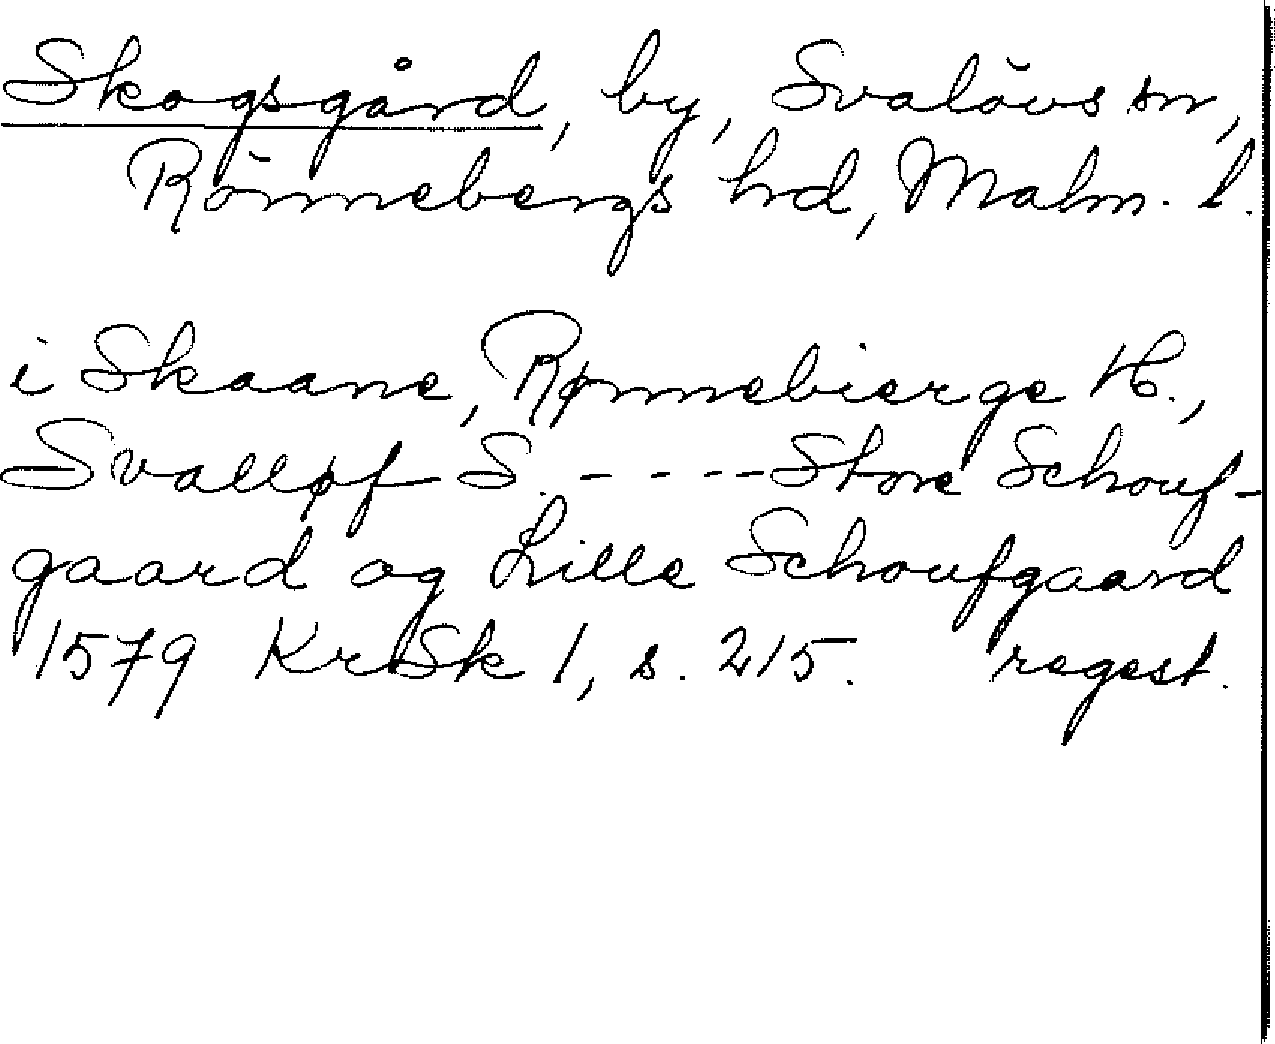 Skogsgård, by, Svalövs sn,
Rönnebergs hrd, Malm. l.
i Skaane, Rønnebierge H.,
Svalløf S. - - - - Store Schouf-
gaard og Lille Schoufgaard
1579 KrSk 1, s. 215. regest.